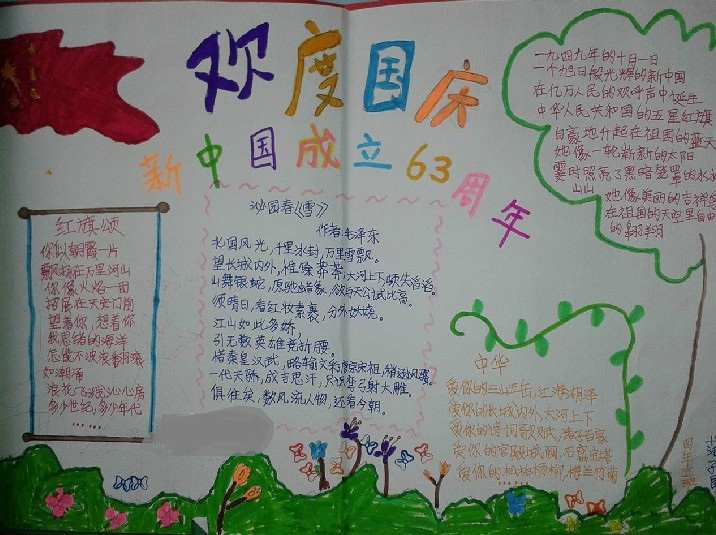 欢度国庆
新中国成立63周年
红旗颂
你似朝霞一片
飘扬在万里河山
你像火焰一団
招展在天安门前
望着你,想着你
我思绪的海洋
怎能不波浪翻滚
如潮涌
浪花飞溅沁心房
多少世纪,多少年代
……
沁园春《雪》
作者:毛泽东
北国风光,千里冰封,万里雪飘。
望长城内外,惟馀莽莽,大河上下,顿失滔滔。
山舞银蛇,原驰蜡象,欲与天公试比高。
须晴日,看红妆素裹,分外妖娆。
江山如此多娇,
引无数英雄竞折腰。
惜秦皇汉武,略输文采,唐宗宋祖,稍逊风骚。
一代天骄,成吉思汗,只识弯弓射大雕。
俱往矣,数风流人物,还看今朝。
一九四九年的十月一日
一个旭日般光辉的新中国
在亿万人民的欢呼声中诞生
中华人民共和国的五星红旗
自豪地升起在祖国的蓝天
她像一轮崭新的太阳
霎时照亮了黑暗笼罩的水
山山
她像美丽的吉祥
在祖国的天空里自由
的翱翔
中华
爱你的三山五岳,江海湖泽
爱你的长城内外,大河上下
爱你的诗词
爱你的
爱你的